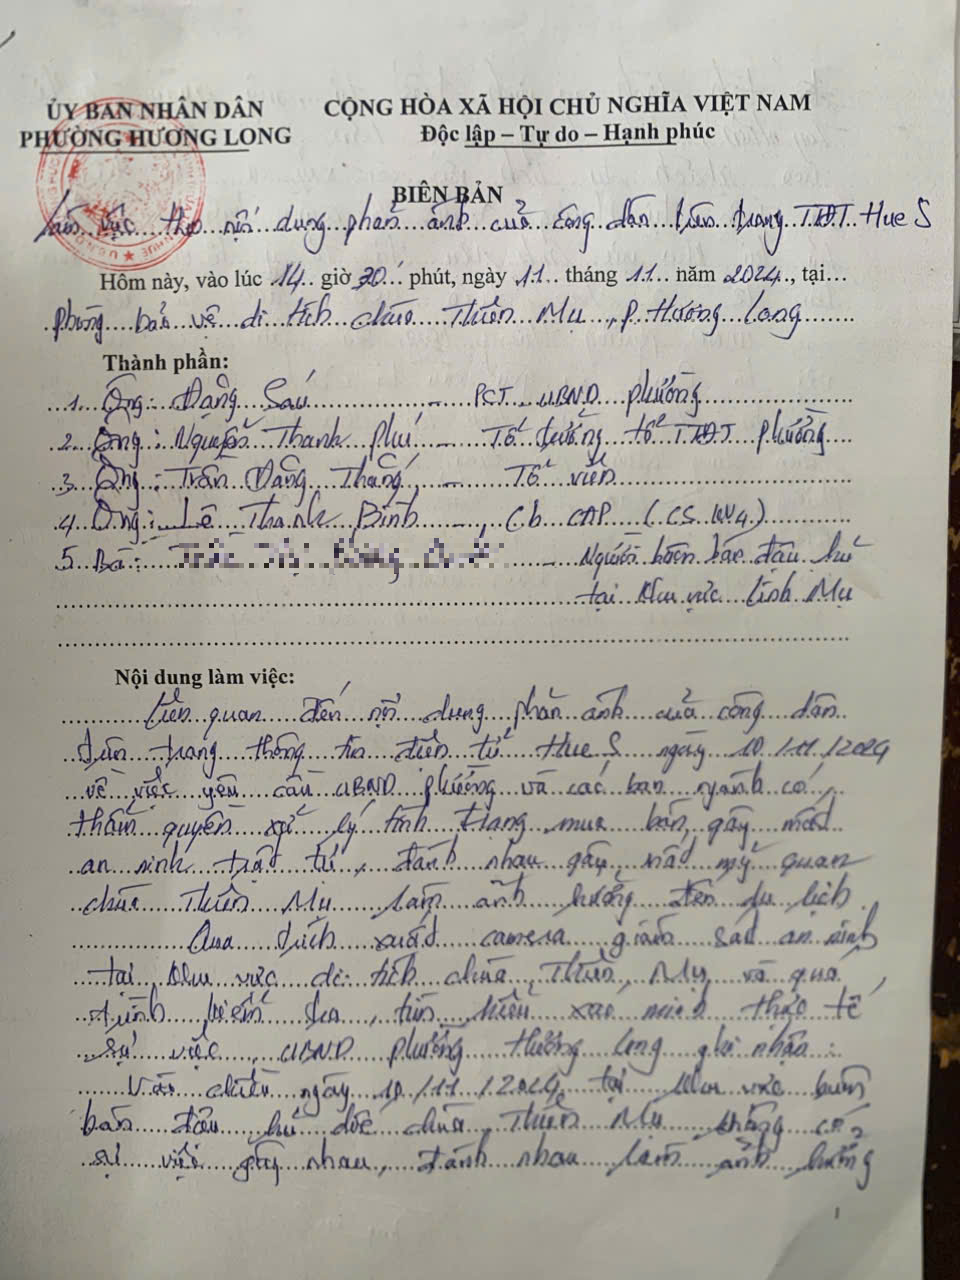 ỦY BAN NHÂN DÂN
PHƯỜNG HƯƠNG LONG
CỘNG HÒA XÃ HỘI CHỦ NGHĨA VIỆT NAM
Độc lập – Tự do – Hạnh phúc
BIÊN BẢN
Làm việc theo nội dung phản ánh của công dân trên trang TTĐT Hue S
Hôm này, vào lúc 14 giờ 30 phút, ngày 11 tháng 11 năm 2024, tại
phòng bảo vệ di tích chùa Thiên Mụ, P. Hương Long
Thành phần:
1. Ông: Đặng Sáu PCT UBND phường
2. Ông: Nguyễn Thanh Phú - Tổ trưởng tổ TTĐT phường
3. Ông: Trần Đăng Thắng, - Tổ viên
4. Ông: Lê Thanh Bình -, Cb CAP (CS KV4)
5. Bà: - Người buôn bán đậu hũ
tại khu vực Linh Mụ
Nội dung làm việc:
Liên quan đến nội dung phản ánh của công dân
trên trang thông tin điện tử Hue S ngày 10/11/2024
về việc yêu cầu UBND phường và các ban ngành có
thẩm quyền xử lý tình trạng mua bán, gây mất
an ninh trật tự, đánh nhau gây mất mỹ quan
chùa Thiên Mụ làm ảnh hưởng đến du lịch
Qua trích xuất camera giám sát an ninh
tại khu vực di tích chùa Thiên Mụ và qua
trình kiểm tra, tìm hiểu xác minh thực tế
sự việc, UBND phường Hương Long ghi nhận:
Vào chiều ngày 10/11/2024, tại khu vực buôn
bán đậu hũ dốc chùa Thiên Mụ không có
sự việc gây nhau, đánh nhau làm ảnh hưởng
1